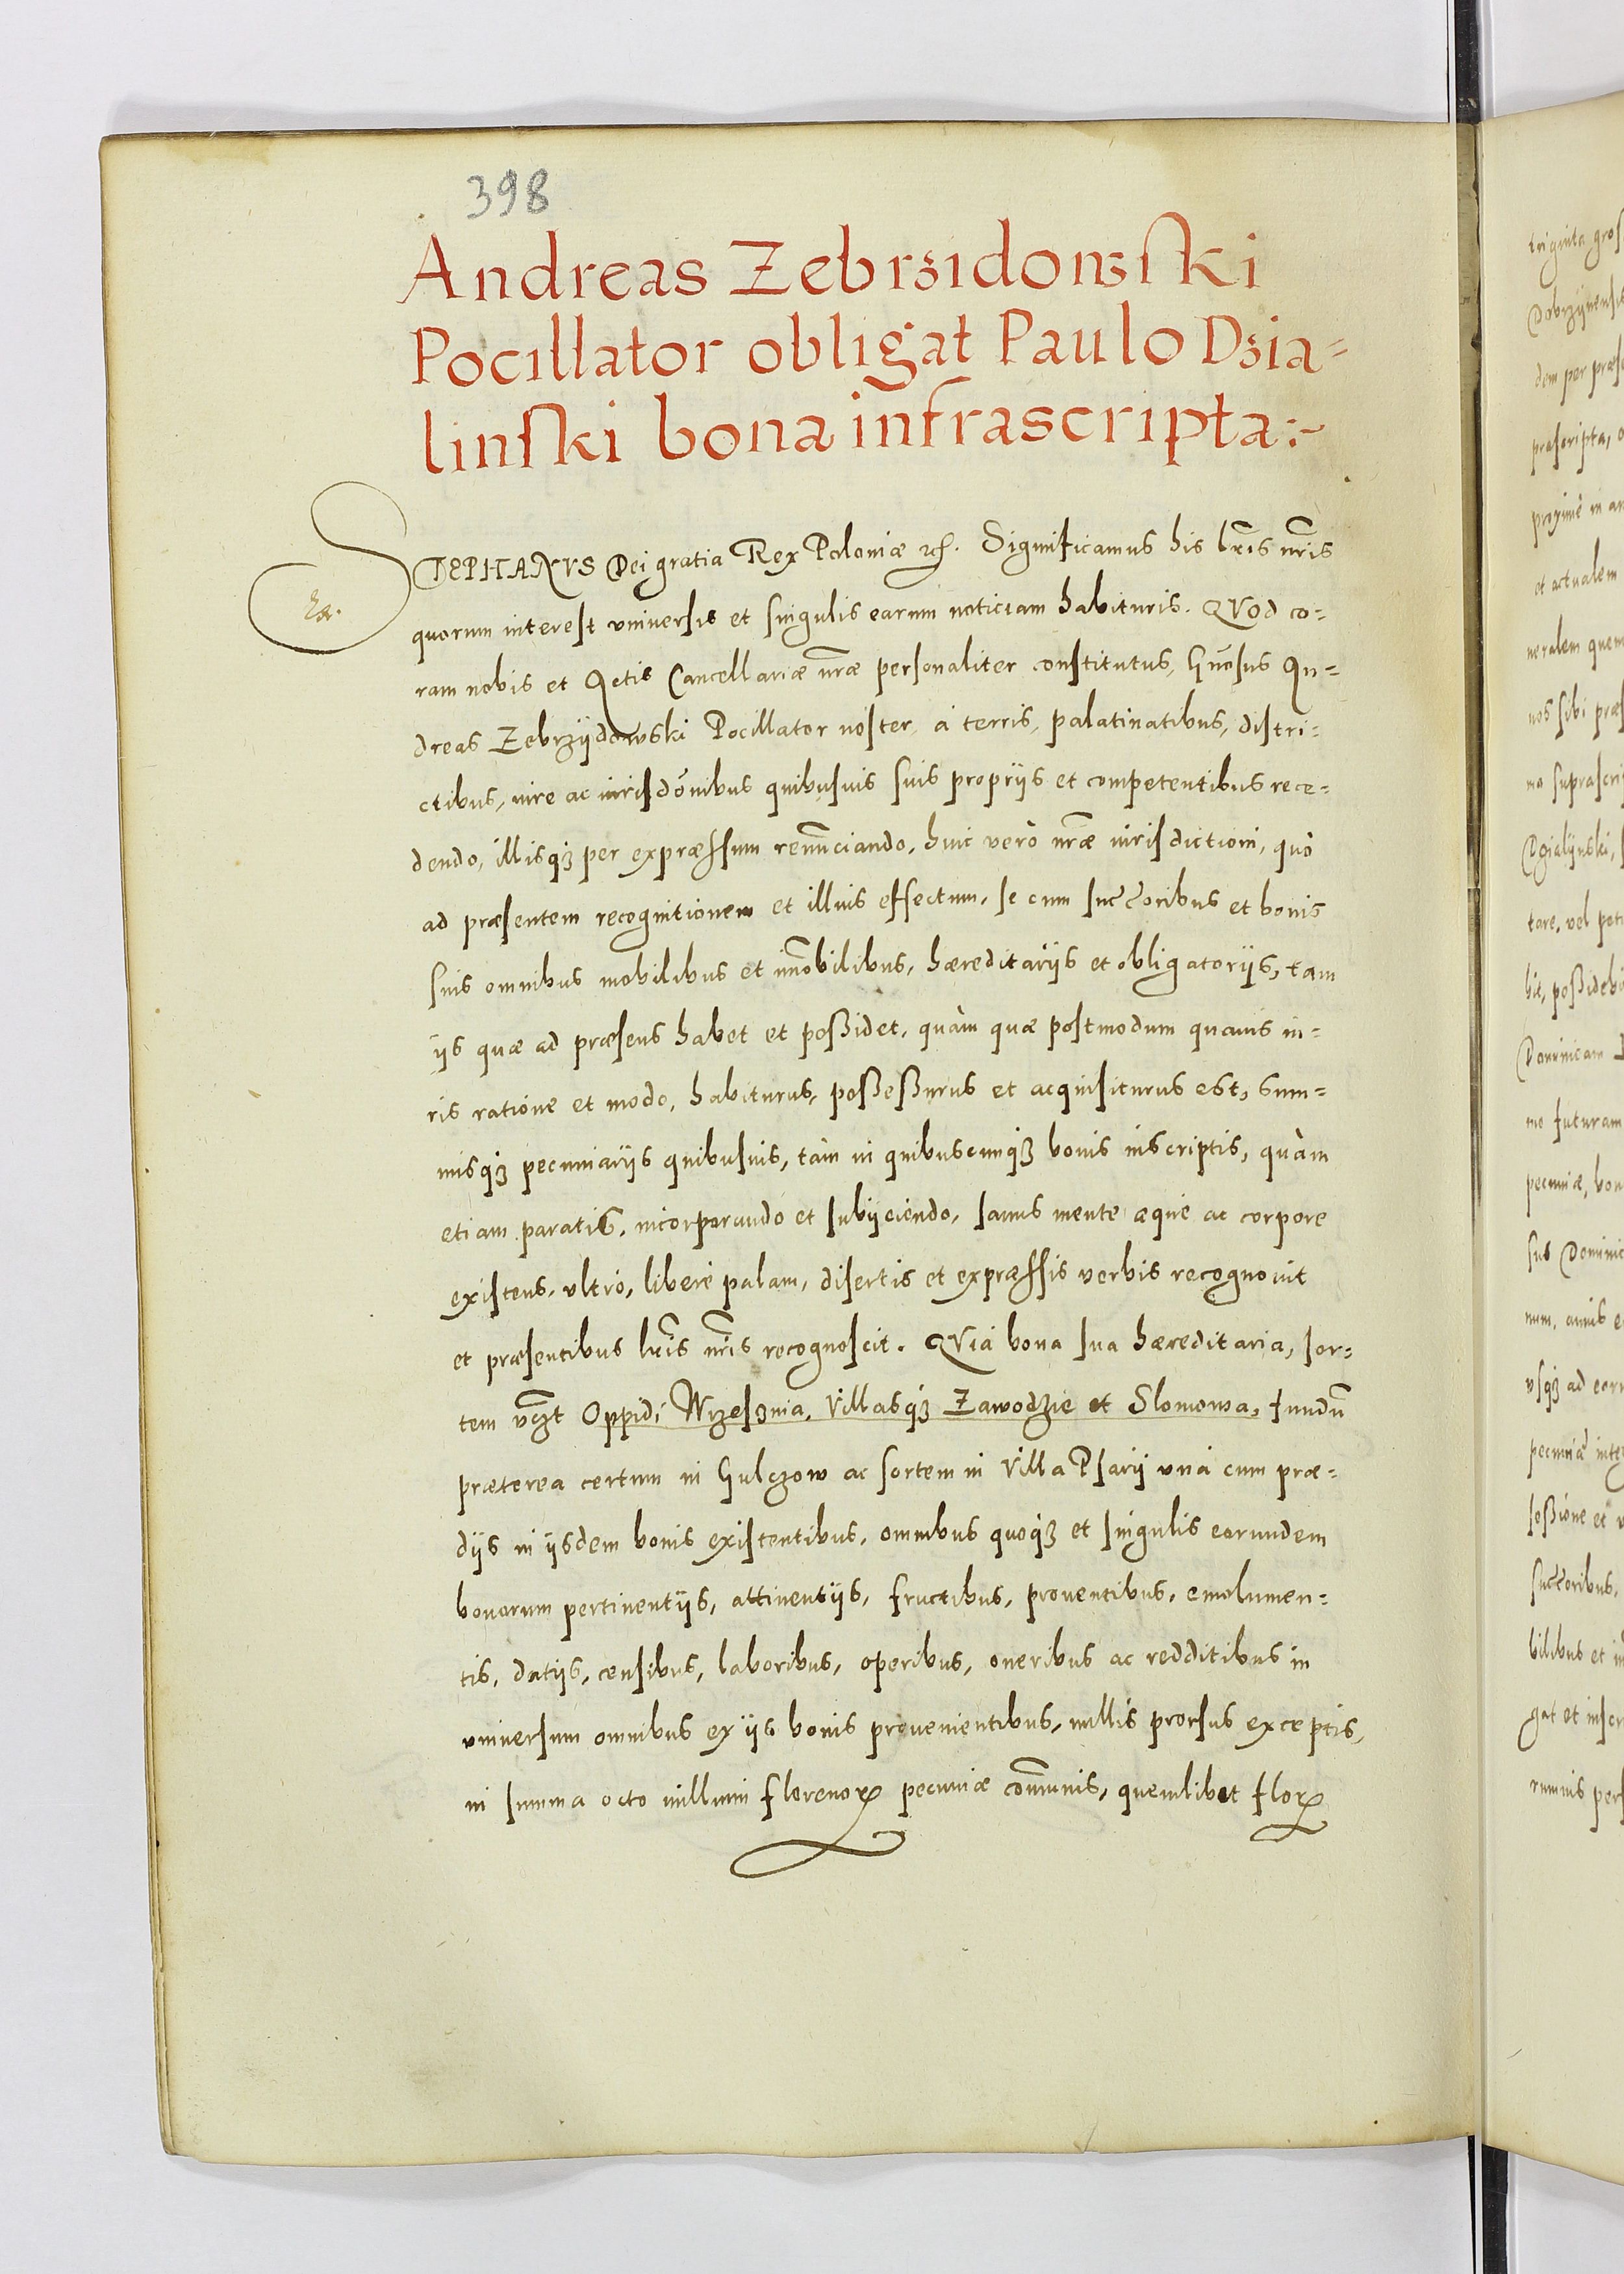 398
Andreas Zebrzidowski
Pocillator obligat Paulo Dzia-
linski bona infrascripta:~
STEPHANVS Dei gratia Rex Poloniæ etc. Significamus his lris nris
quorum interest vniuersis et singulis earum noticiam habituris. QVod co-
ram nobis et Actis Cancellariæ nræ personaliter constitutus, Gnosus An-
dreas Zebrzÿdowski Pocillator noster, à terris, palatinatibus, distri-
ctibus, iure ac iurisdonibus quibusuis suis proprÿs et competentibus rece-
dendo, illisq3 per expræssum renunciando, huic verò nræ iurisdictioni, quò
ad præsentem recognitionem et illius effectum, se cum succoribus et bonis
suis omnibus mobilibus et imobilibus, hæreditarÿs et obligatorÿs, tam
ÿs quæ ad præsens habet et poßidet, quàm quæ postmodum quauis iu-
ris ratione et modo, habiturus, poßeßurus et acquisiturus est, sum-
misq3 pecuniarÿs quibusuis, tàm in quibuscunq3 bonis inscriptis, quàm
etiam paratis, incorporando et subÿciendo, sanus mente æquè ac corpore
existens, vltrò, liberè palam, disertis et expræssis verbis recognouit
et præsentibus lris nris recognoscit. QVia bona sua hæreditaria, sor-
tem vczt Oppidi Wrzesznia, Villasq3 Zawodzie et Slomowa, fundu
præterea certum in Gulczow ac sortem in Villa Psarÿ vnà cum præ-
dÿs in ÿsdem bonis existentibus, omnibus quoq3 et singulis eorundem
bonorum pertinentÿs, attinentÿs, fructibus, prouentibus, emolumen-
tis, datÿs, censibus, laboribus, operibus, oneribus ac redditibus in
vniuersum omnibus ex ÿs bonis prouenientibus, nullis prorsus exceptis,
in summa octo millium florenorꝝ pecuniæ comunis, quemlibet florꝝ
triginta gros
Dobrzÿnensis
dem per præse
præscripta,
proximè in
et actualem
neralem quem
nos sibi præ
mo suprascri
Dzialÿnski,
tare, vel
bit, poßidebi
Dominicam
mo futuram
pecuniæ, bon
sus Dominic
num, annis
vsq3 ad
pecuniæ inte
seßione et
succoribus,
bilibus et
gat et inscr